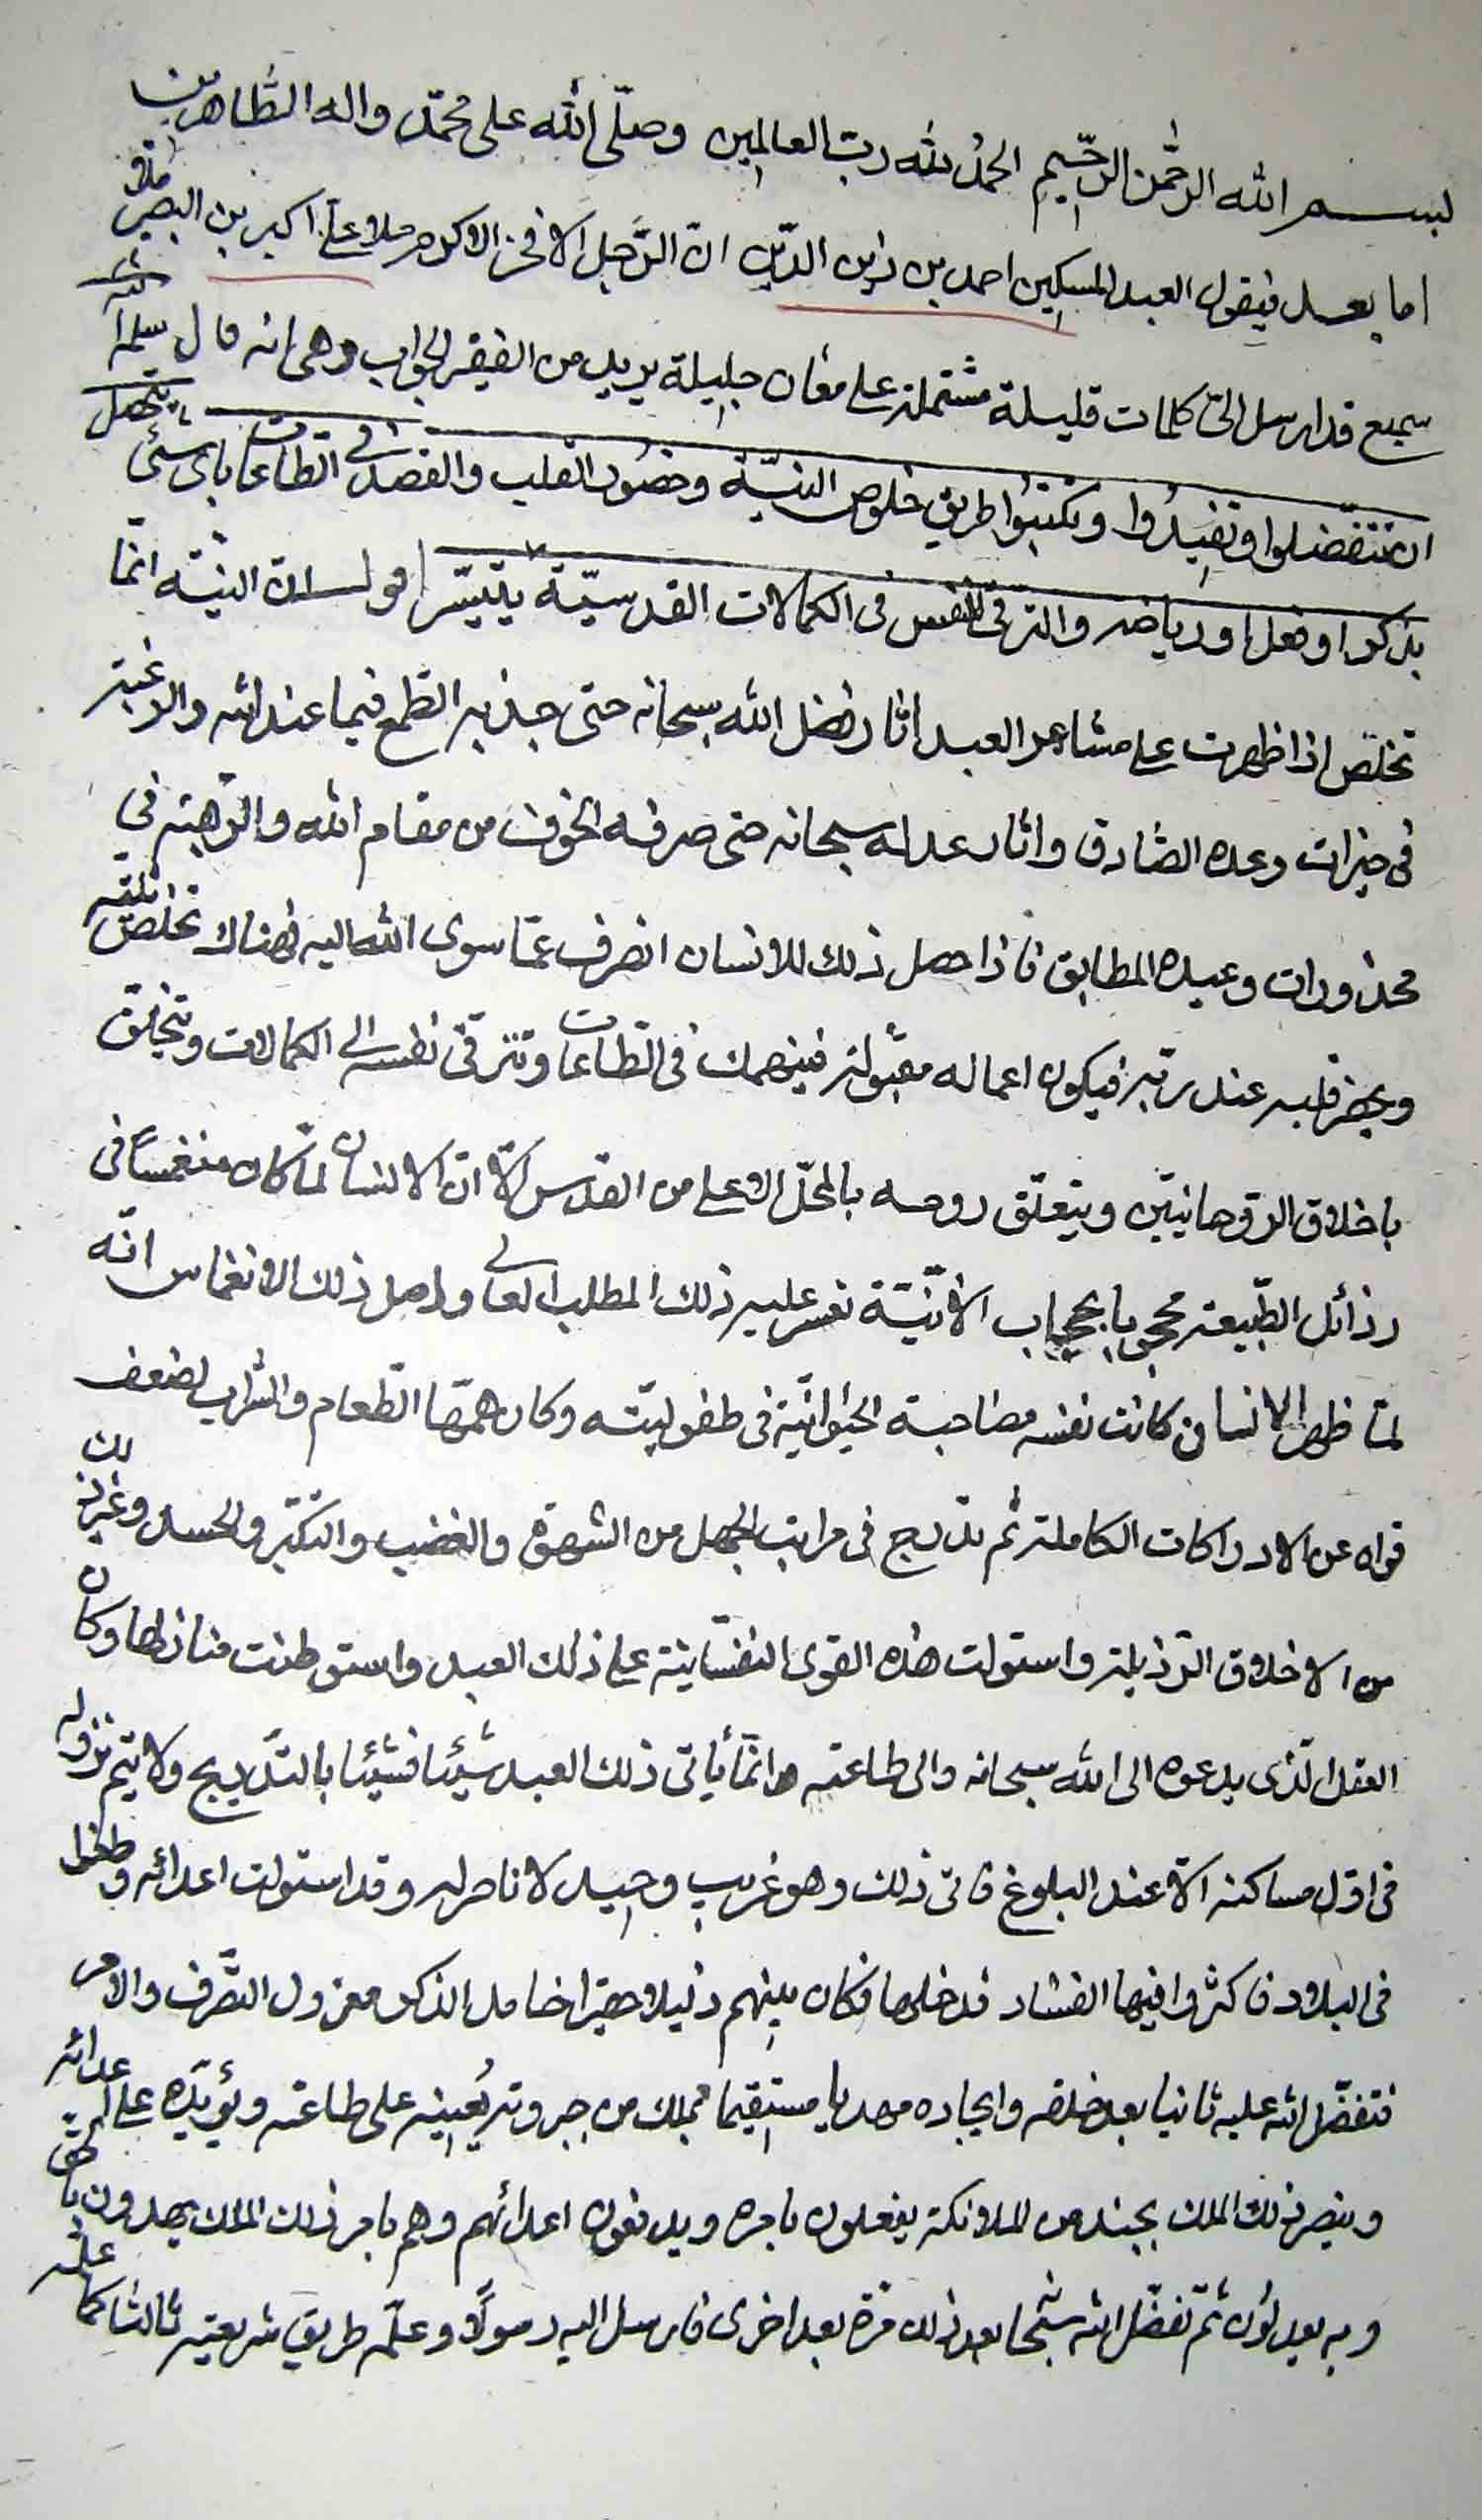 بسم الله الرحمن الرحيم الحمد لله رب العالمين وصلّى الله على محمّد واله الطّاهرين
اما بعد فيقول العبد المسكين احمد بن زين الدّين انّ الرّجل الافخر الاكرم ملا علي اكبر بن البصير ملا
سميع قد ارسل الىّ كلمات قليلة مشتملة على معان جليلة يريد من الفقير الجواب وهى انه قال سلمه الله
ان تتفضّلوا وتفيدوا وتكتبوا طريق خلوص النيّة وحضور القلب والقصد فى الطّاعات باى شئ يتحصل
بذكر او فعل او رياضه والترقى للنفس فى الكمالات القدسيّة يتيسّر اقول ان النيّة انمّا
تخلّص اذا ظهرت على مشاعر العبد اثار فضل الله سبحانه حتى جذبه الطّمع فيما عند الله والرغبة
فى خيرات وعده الصّادق واثار عدله سبحانه حتى صرفه الخوف من مقام الله والرّهبة فى
محذورات وعيده المطابق فاذا حصل ذلك للانسان انصرف عمّا سوى الله اليه فهناك تخلّص نيّته
ويحضر قلبه عند ربّه فيكون اعماله مقبولة فينهمك فى الطّاعات وتترقّى نفسه الى الكمالات ويتخلّق
باخلاق الرّوحانيّين ويتعلّق روحه بالمحلّ الاعلى من القدس الّا انّ الانسان لمّا كان منغمساً فى
رذائل الطّبيعة محجوبا بحجاب الانّيّة تعسر عليه ذلك المطلب العالى واصل ذلك الانغماس انّه
لمّا ظهر الانسان كانت نفسه مصاحبة الحيوانيّة فى طفوليّته وكان همّها الطّعام والشراب لضعف
قواه عن الادراكات الكاملة ثم تدّرج فى مراتب الجهل من الشهوة والغضب والتكبّر والحسد وغير ذلك
من الاخلاق الرّذيلة واستولت هذه القوى النفسانية على ذلك العبد واستوطنت منازلها وكان
العقل الّذى يدعوه الى الله سبحانه والى طاعته انمّا يأتى ذلك العبد شيئا فشيئا بالتدّريج ولا يتم نزوله
فى اوّل مساكنه الّا عند البلوغ فاتى ذلك وهو غريب وحيد لا ناصر له وقد استولت اعدائه وطغوا
فى البلاد فاكثروا فيها الفساد فدخلها فكان بينهم ذليلا حقيرا خامل الذكر معزول التصّرف والامر
فتفضّل الله عليه ثانيا بعد خلقه وايجاده مهديا مستقيما بملك من جبروته يُعينه على طاعته ويؤيّده على اعدائه
وينصر ذلك الملك بجند من الملائكة يفعلون بامره ويدفعون اعدائهم وهم بامر ذلك الملك يهدون بالحق
وبه يعدلون ثمّ تفضّل الله سبحانه بعد ذلك مرّة بعد اخرى فارسل اليه رسولًا وعلّمه طريق شريعته ثالثا كما علّمه